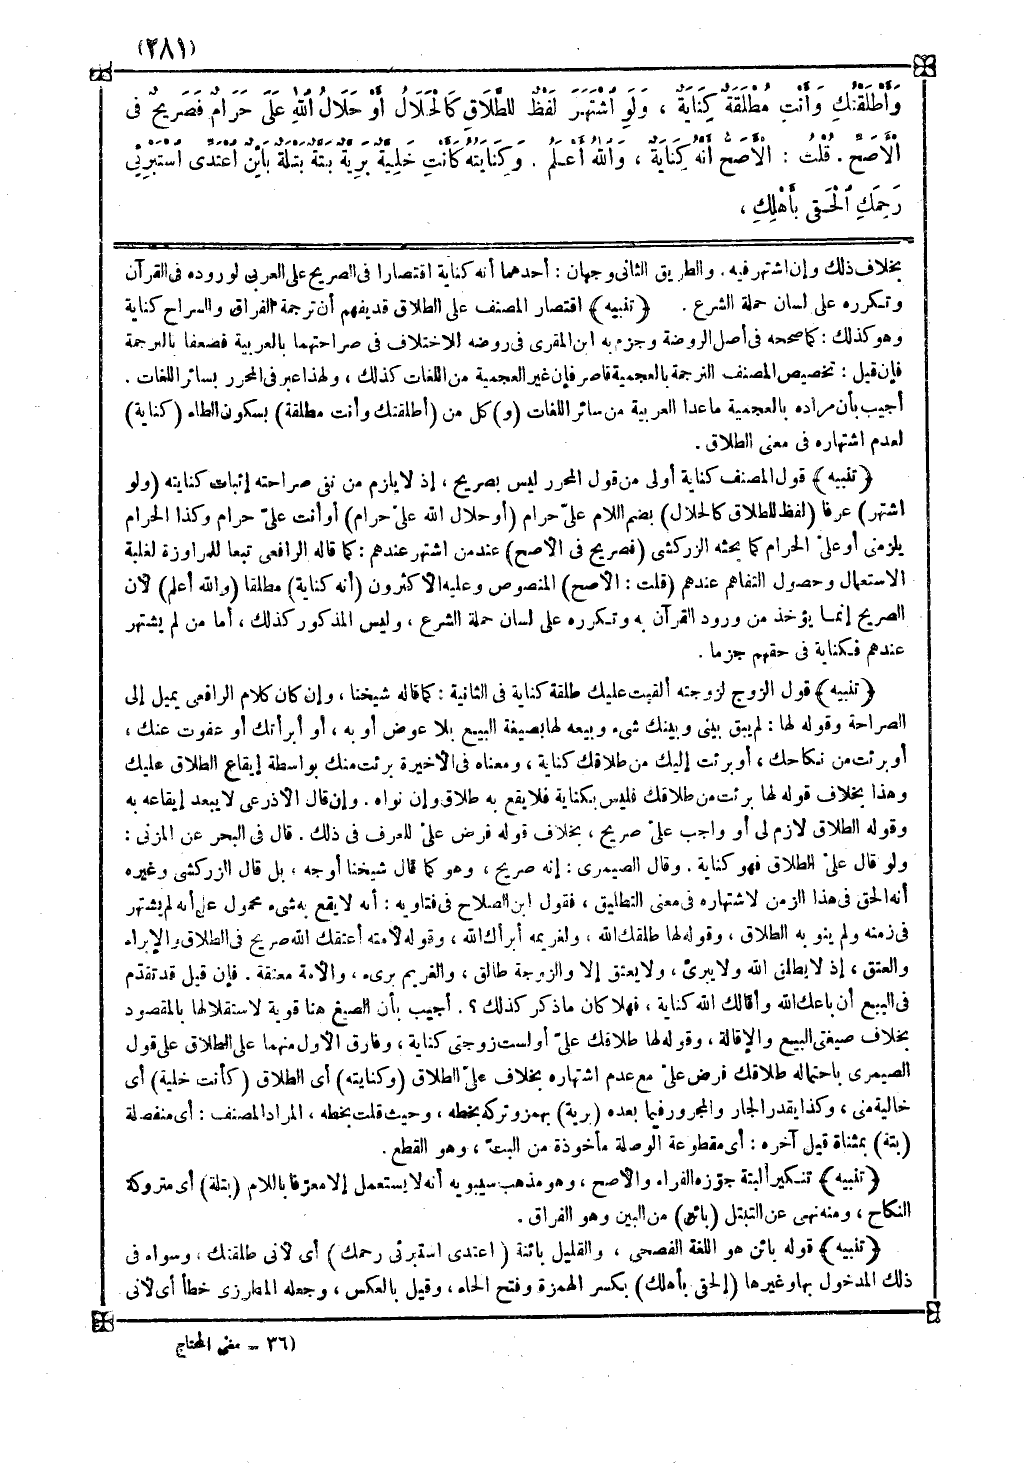 (٢٨١)
وَأَطْلَقْتُكِ وَأَنْتِ مُطْلَقَةٌ كِنَايَةٌ ، وَلَوِ اشْتَهَرَ لَفْظٌ لِلطَّلَاقِ كَالْحَلَالُ أَوْ حَلَالُ اللهِ عَلَىَّ حَرَامٌ فَصَرِيحٌ فى
الْأَصَحِّ . قُلْتُ : الْأَصَحُّ أَنَّهُ كِنَايَةٌ ، وَاللهُ أَعْلَمُ . وَكِنَايَتُهُ كَأَنْتِ خَلِيَّةٌ بَرِيَّةٌ بَتَّةٌ بَتْلَةٌ بَائِنٌ اعْتَدِّى اسْتَبْرِئِى
رَحِمَكِ الْحَقِى بِأَهْلِكِ ،
بخلاف ذلك وإن اشتهر فيه . والطريق الثانى وجهان : أحدهما أنه كناية اقتصارا فى الصريح على العربى لوروده فى القرآن
وتكرره على لسان حملة الشرع . ﴿تنبيه﴾ اقتصار المصنف على الطلاق قد يفهم أن ترجمة الفراق والسراح كناية
وهو كذلك : كما صححه فى أصل الروضة وجزم به ابن المقرى فى روضه للاختلاف فى صراحتهما بالعربية فضعفا بالترجمة
فإن قيل : تخصيص المصنف الترجمة بالعجمية قاصر فإن غير العجمية من اللغات كذلك ، ولهذا عبر فى المحرر بسائر اللغات .
أجيب بأن مراده بالعجمية ماعدا العربية من سائر اللغات (و) كل من (أطلقتك وأنت مطلقة) بسكون الطاء (كناية)
لعدم اشتهاره فى معنى الطلاق .
﴿تنبيه﴾ قول المصنف كناية أولى من قول المحرر ليس بصريح ، إذ لا يلزم من نفى صراحته إثبات كنايته (ولو
اشتهر) عرفا (لفظ للطلاق كالحلال) بضم اللام علىّ حرام (أو حلال الله علىّ حرام) أو أنت علىّ حرام وكذا الحرام
يلزمنى أو علىّ الحرام كما بحثه الزركشى (فصريح فى الأصح) عند من اشتهر عندهم : كما قاله الرافعى تبعا للمراوزة لغلبة
الاستعمال وحصول التفاهم عندهم (قلت : الأصح) المنصوص وعليه الأكثرون (أنه كناية) مطلقا (والله أعلم) لأن
الصريح إنما يؤخذ من ورود القرآن به وتكرره على لسان حملة الشرع ، وليس المذكور كذلك ، أما من لم يشتهر
عندهم فكناية فى حقهم جزما .
﴿تنبيه﴾ قول الزوج لزوجته ألقيت عليك طلقة كناية فى الثانية : كما قاله شيخنا ، وإن كان كلام الرافعى يميل إلى
الصراحة وقوله لها : لم يبق بينى وبينك شىء وبيعه لها بصيغة البيع بلا عوض أو به ، أو أبرأتك أو عفوت عنك ،
أو برئت من نكاحك ، أو برئت إليك من طلاقك كناية ، ومعناه فى الأخيرة برئت منك بواسطة إيقاع الطلاق عليك
وهذا بخلاف قوله لها برئت من طلاقك فليس بكناية فلا يقع به طلاق وإن نواه . وإن قال الأذرعى لا يبعد إيقاعه به
وقوله الطلاق لازم لى أو واجب علىّ صريح ، بخلاف قوله فرض علىّ للعرف فى ذلك . قال فى البحر عن المزنى :
ولو قال علىّ الطلاق فهو كناية . وقال الصيمرى : إنه صريح ، وهو كما قال شيخنا أوجه ، بل قال الزركشى وغيره
أنه الحق فى هذا الزمن لاشتهاره فى معنى التطليق ، فقول ابن الصلاح فى فتاويه : أنه لا يقع به شىء محمول على أنه لم يشتهر
فى زمنه ولم ينو به الطلاق ، وقوله لها طلقك الله ، ولغريمه أبرأك الله ، وقوله لأمته أعتقك الله صريح فى الطلاق والإبراء
والعتق ، إذ لا يطلق الله ولا يبرئ ، ولا يعتق إلا والزوجة طالق ، والغريم برىء ، والأمة معتقة . فإن قيل قد تقدّم
فى البيع أن باعك الله وأقالك الله كناية ، فهلا كان ما ذكر كذلك ؟ . أجيب بأن الصيغ هنا قوية لاستقلالها بالمقصود
بخلاف صيغتى البيع والإقالة ، وقوله لها طلاقك علىّ أو لست زوجتى كناية ، وفارق الأول منهما على الطلاق على قول
الصيمرى باحتماله طلاقك فرض علىّ مع عدم اشتهاره بخلاف علىّ الطلاق (وكنايته) أى الطلاق (كأنت خلية) أى
خالية منى ، وكذا يقدر الجار والمجرور فيما بعده (برية) بهمز وتركه بخطه ، وحيث قلت بخطه ، المراد المصنف : أى منفصلة
(بتة) بمثناة قبل آخره : أى مقطوعة الوصلة مأخوذة من البتّ ، وهو القطع .
﴿تنبيه﴾ تنكير ألبتة جوّزه الفراء والأصح ، وهو مذهب سيبويه أنه لا يستعمل إلا معرّفا باللام (بتلة) أى متروكة
النكاح ، ومنه نهى عن التبتل (بائن) من البين وهو الفراق .
﴿تنبيه﴾ قوله بائن هو اللغة الفصحى ، والقليل بائنة (اعتدى استبرئى رحمك) أى لأنى طلقتك ، وسواء فى
ذلك المدخول بها وغيرها (إلحقى بأهلك) بكسر الهمزة وفتح الحاء ، وقيل بالعكس ، وجعله المطرزى خطأ أى لأنى
(٣٦ - مغنى المحتاج